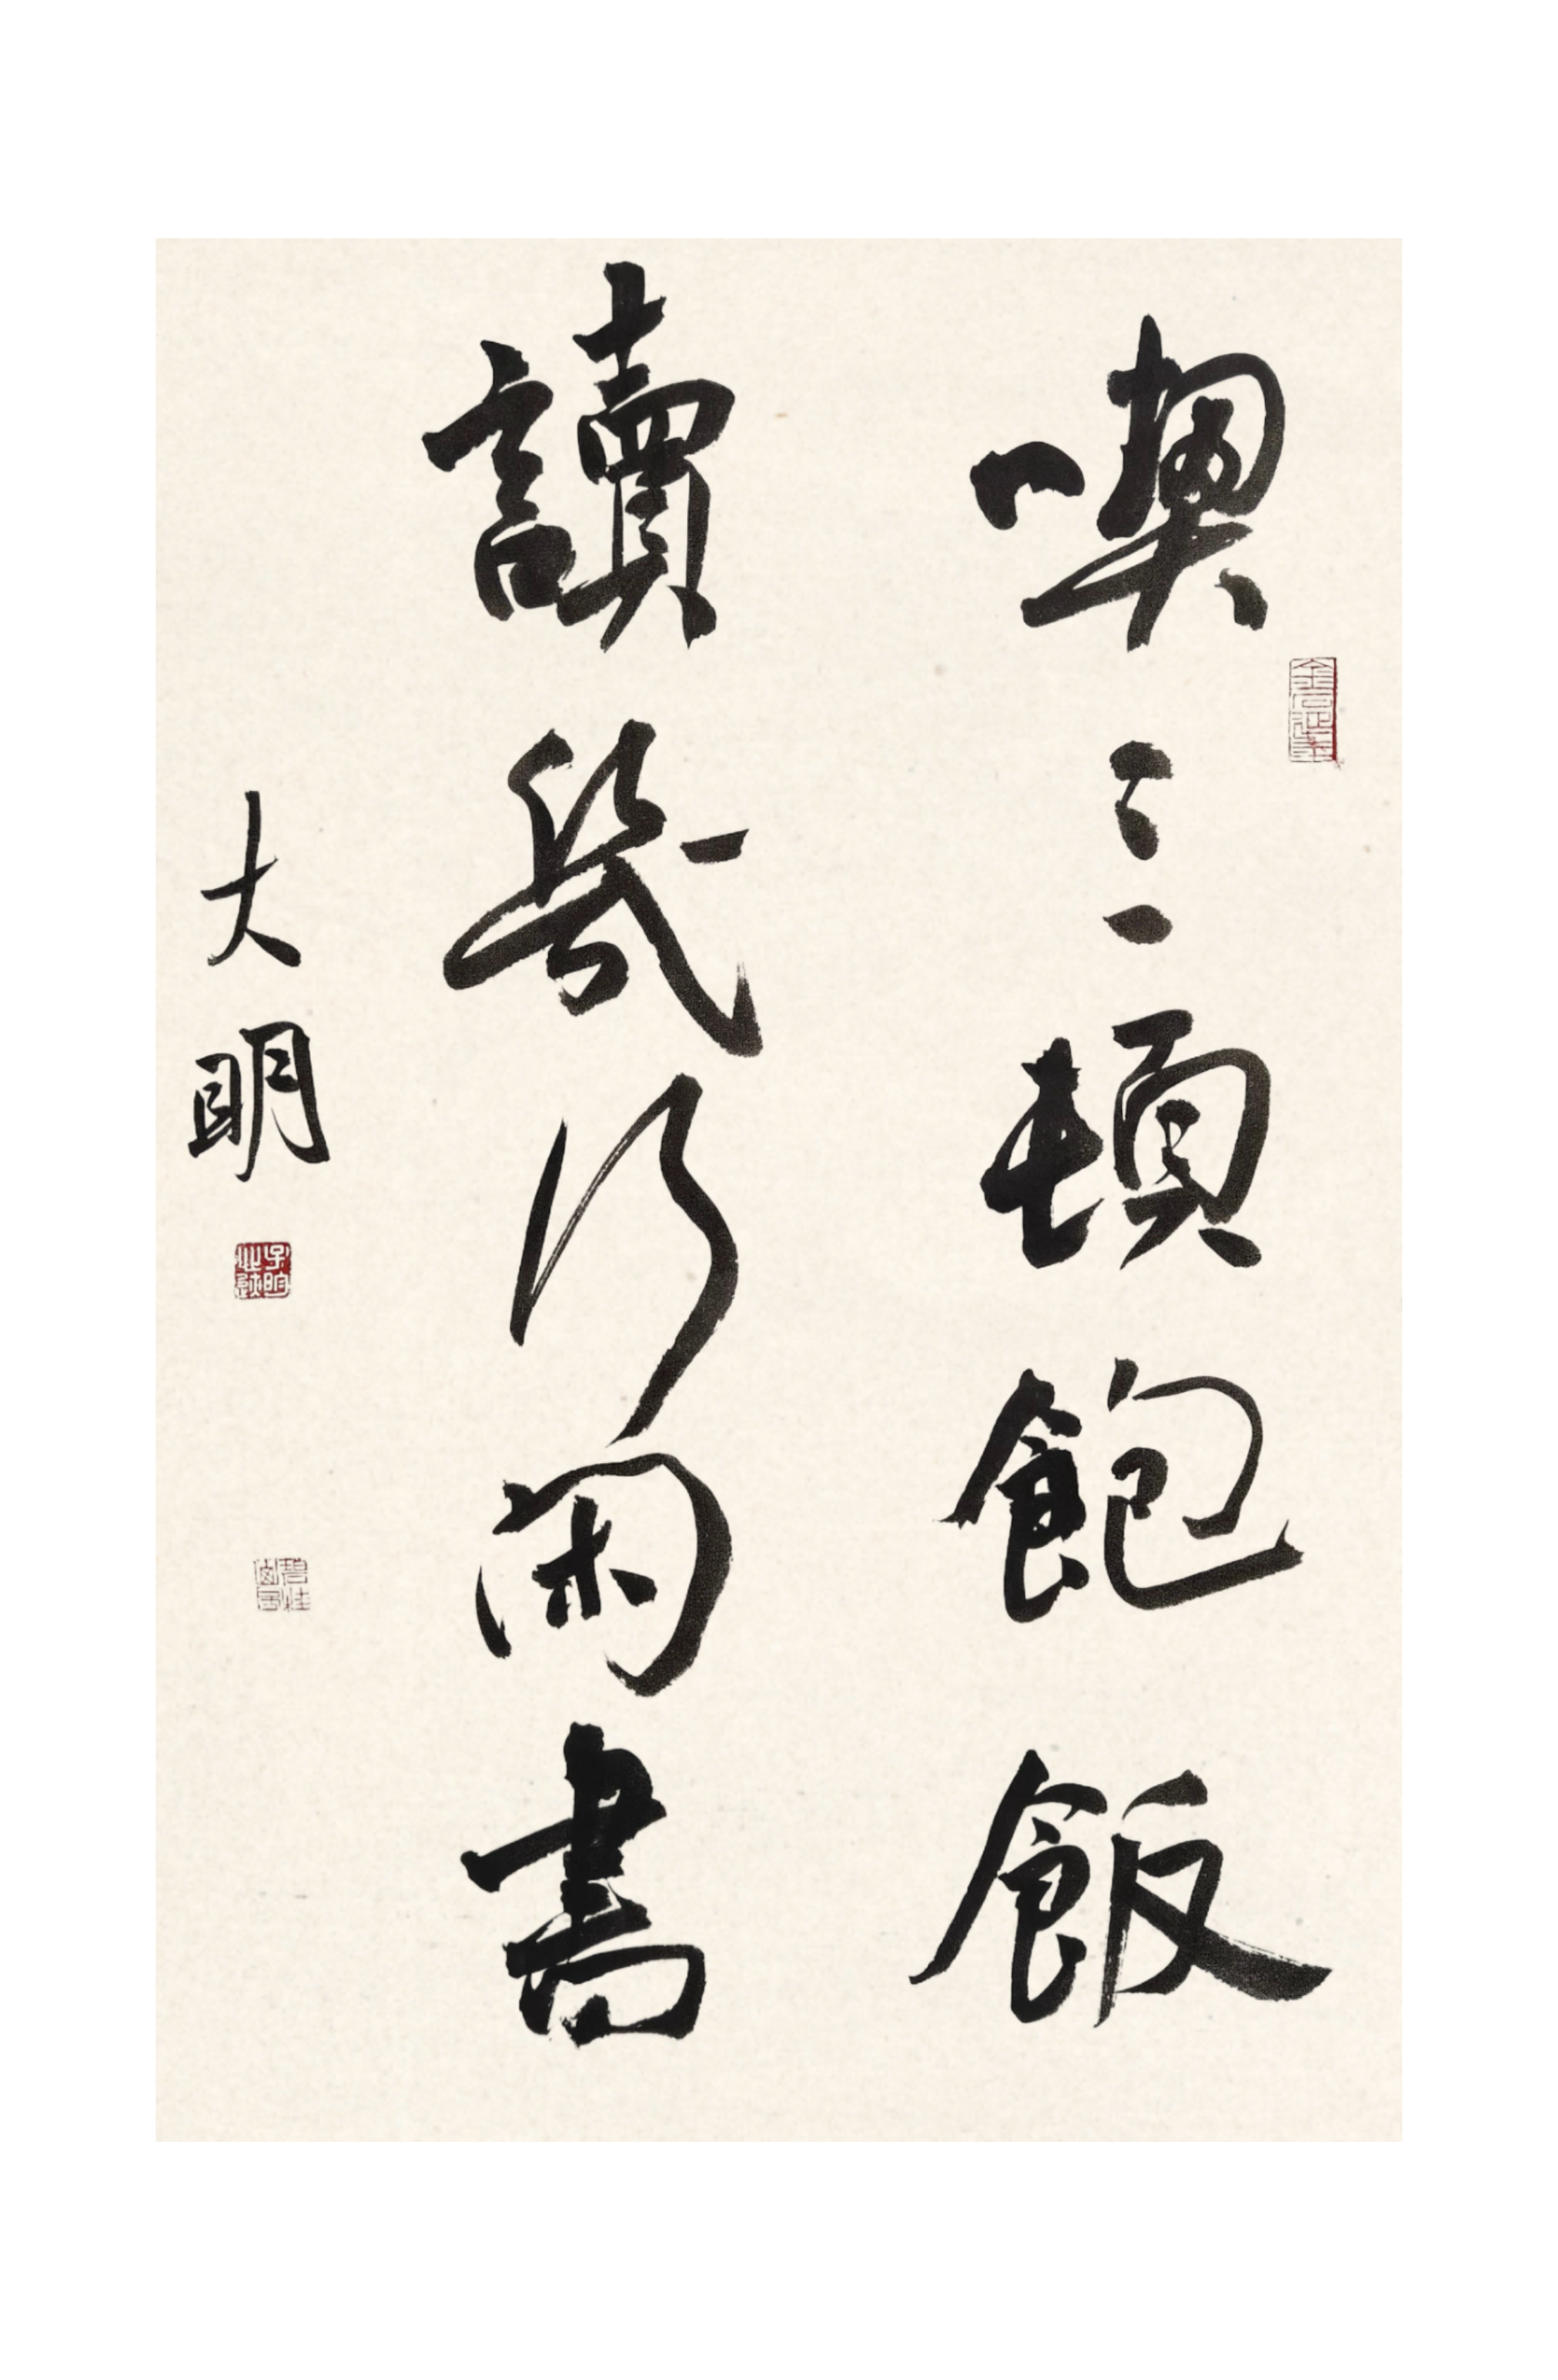 喫三頓飽飯
讀幾行閑書
大明